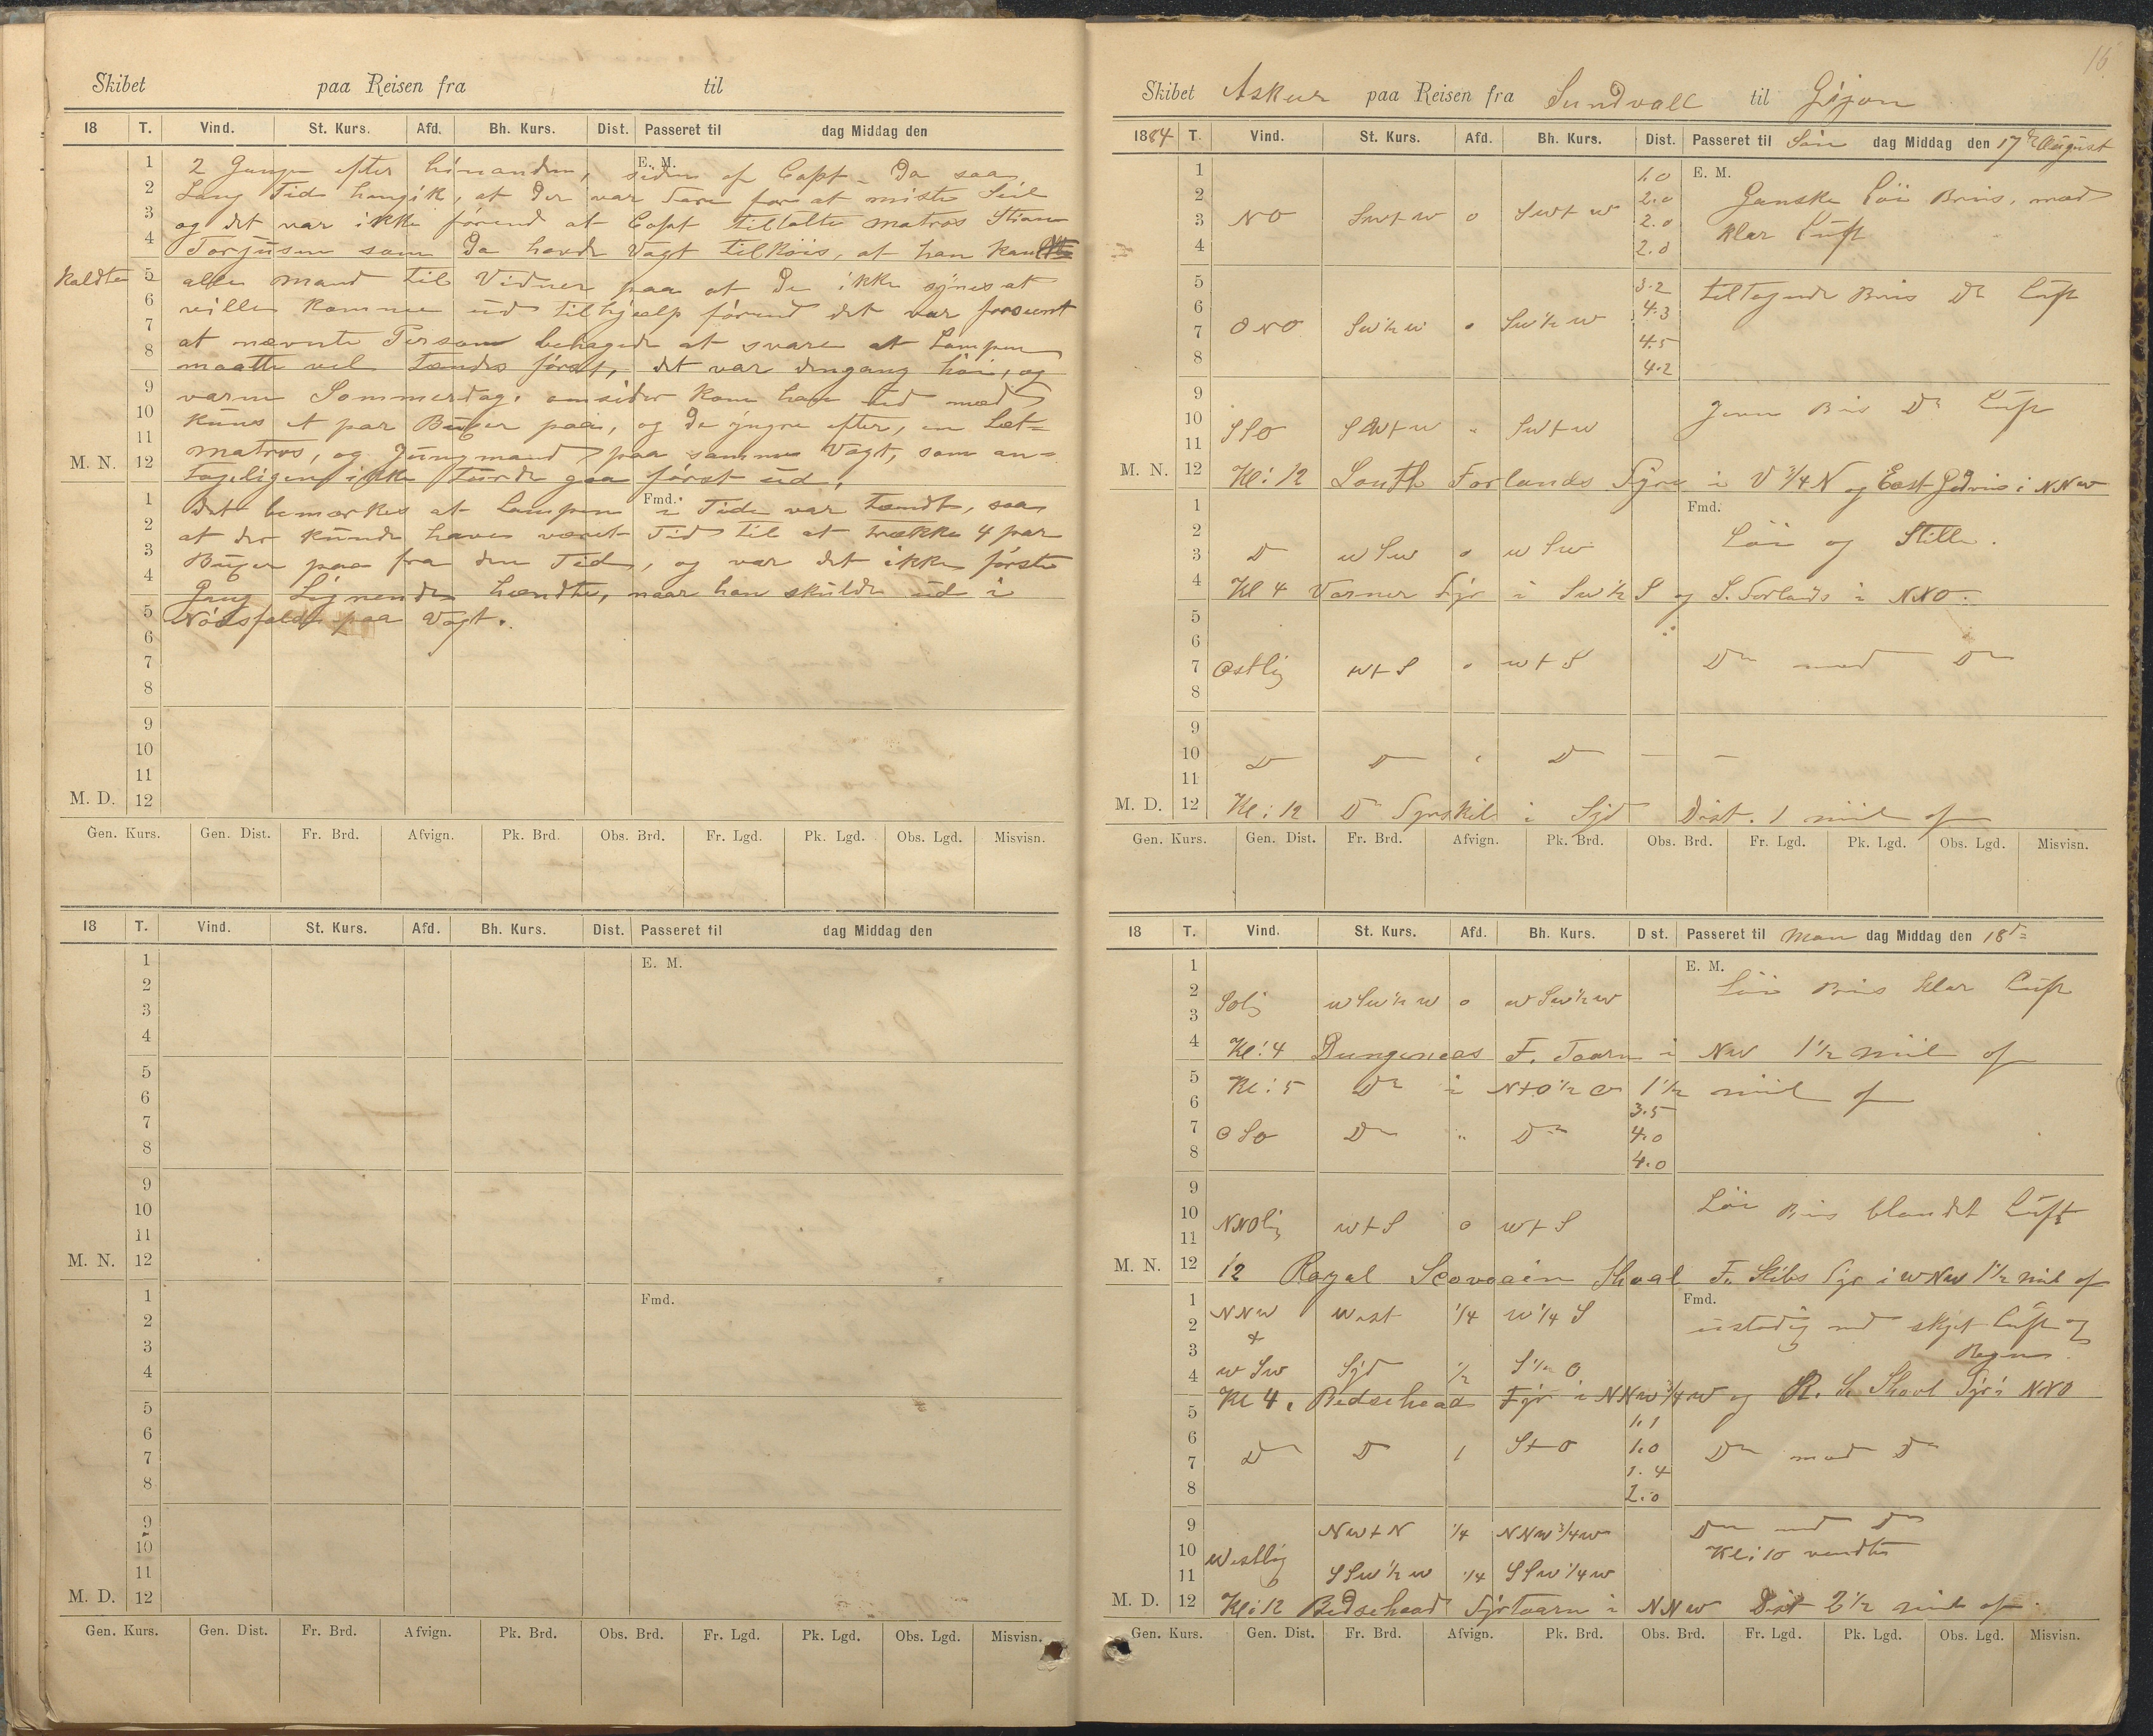 Skibet paa Reisen fra til
18 T. Vind. St. Kurs. Afd. Bh. Kurs. Dist. Passeret til dag Middag den
E. M.
1 2 Gange efter hinanden, siden af Capt. Da saa
2 Lang Tid hengik, at Der var Fare for at miste Seil
3 og det var ikke förend at Capt tiltalte Matros Stian
4 Torjusen som Da havde Vagt tilköis, at han
Kaldte 5 alle mand til Vidner paa at De ikke synes at
6 ville komme ud til hjælp förend det var forsent
7 at nævnte Person behagede at svare at Lampen
8 maatte vel tændes först, det var dengang höi, og
9 varm Sommerdag. omsider kom han ud med
10 kuns et par Buxer paa, og de yngre efter, en Let=
11 matros, og Jungmand paa samme Vagt, som an=
M. N. 12 tageligen ikke turde gaa först ud.
Fmd.
1 Det bemærkes at Lampen i Tide var tændt, saa
2 at der kunde have været Tid til at trække 4 par
3 Buxer paa fra den Tid, og var det ikke förste
4 Gang Lignende hændte, naar han skulde ud i
5 Nödsfald paa Vagt.
6
7
8
9
10
11
M. D. 12
Gen. Kurs. Gen. Dist. Fr. Brd. Afvign. Pk. Brd. Obs. Brd. Fr. Lgd. Pk. Lgd. Obs. Lgd. Misvisn.
18 T. Vind. St. Kurs. Afd. Bh. Kurs. Dist. Passeret til dag Middag den
1 E. M.
2
3
4
5
6
7
8
9
10
11
M. N. 12
1 Fmd.
2
3
4
5
6
7
8
9
10
11
M. D. 12
Gen. Kurs. Gen. Dist. Fr. Brd. Afvign. Pk. Brd. Obs. Brd. Fr. Lgd. Pk. Lgd. Obs. Lgd. Misvisn.
16
Skibet Askur paa Reisen fra Sundvall til Gijon
1884 T. Vind. St. Kurs. Afd. Bh. Kurs. Dist. Passeret til Sön dag Middag den 17de August
1 1.0 E. M.
2 2.0 Ganske Löi Bris, med
3 NO SWtW 0 SWtW 2.0 klar Luft
4 2.0
5 3.2 tiltagende Bris Do Luft
6 4.3
7 ONO SW½W 0 SW½W 4.5
8 4.2
9
10 Jevn Bris Do Luft
11 SSO SWtW " SWtW
M. N. 12 Kl: 12 South Forlands Fyre i V ¾ N og East i NNW
1 Fmd.
2 Löi og Stille.
3 D WSW 0 WSW
4 Kl 4 Varner Fyr i SW½S og S. Forlands i NNO.
5
6
7 Ostlig WtS 0 WtS Do med Do
8
9
10 D D " D
11
M. D. 12 Kl: 12 Do Fyrskib i Syd Dist. 1 miil af
Gen. Kurs. Gen. Dist. Fr. Brd. Afvign. Pk. Brd. Obs. Brd. Fr. Lgd. Pk. Lgd. Obs. Lgd. Misvisn.
18 T. Vind. St. Kurs. Afd. Bh. Kurs. Dist. Passeret til Man dag Middag den 18de
1 E. M.
2 Löi Bris klar Luft
3 Solig WSW½W 0 WSW½W
4 Kl: 4 Dungeneas F. Taarn i NW 1½ miil af
5 Kl: 5 Do i NtO½O 1½ miil af
6 3.5
7 OSO Do " Do 4.0
8 4.0
9
10 Löi Bris blandet Luft
11 NNOlig WtS 0 WtS
M. N. 12 12 Royal Shoal F. Skibs Fyr i WNW 1½ mil af
1 NNW West ¼ W¼S Fmd.
2 & ustadig med skyet Luft og
3 Regn
4 WSW Syd ½ S½O
Kl 4. Bedsehead Fyr i NNW¾W og R. S. Shoal Fyr i NNO
5 1.1
6 D D 1 StO 1.0 Do med Do
7 1.4
8 2.0
9 NWtN ¼ NNW¾W Do med Do
10 Westlig Kl: 10 vendte
11 SSW½W ¼ SSW¼W
M. D. 12 Kl: 12 Bedsehead Fyrtaarn i NNW Dist 2½ mil af.
Gen. Kurs. Gen. Dist. Fr. Brd. Afvign. Pk. Brd. Obs. Brd. Fr. Lgd. Pk. Lgd. Obs. Lgd. Misvisn.